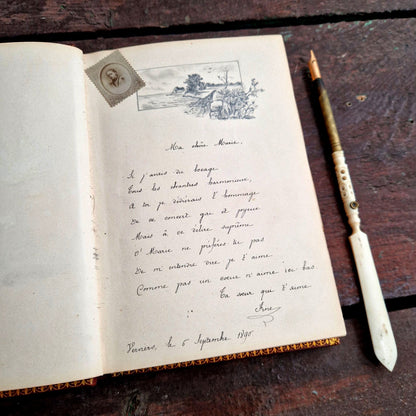 Ma chère Marie,
Si j'avais du bocage
Tous les chantres harmonieux,
A toi je dédierais l'hommage
De ce concert gai et joyeux
Mais à ce délire suprême
O! Marie ne préfères tu pas
De m'entendre dire je t'aime
Comme pas un coeur n'aime ici bas.
Ta soeur qui t'aime
Verviers, le 6 Septembre 1890